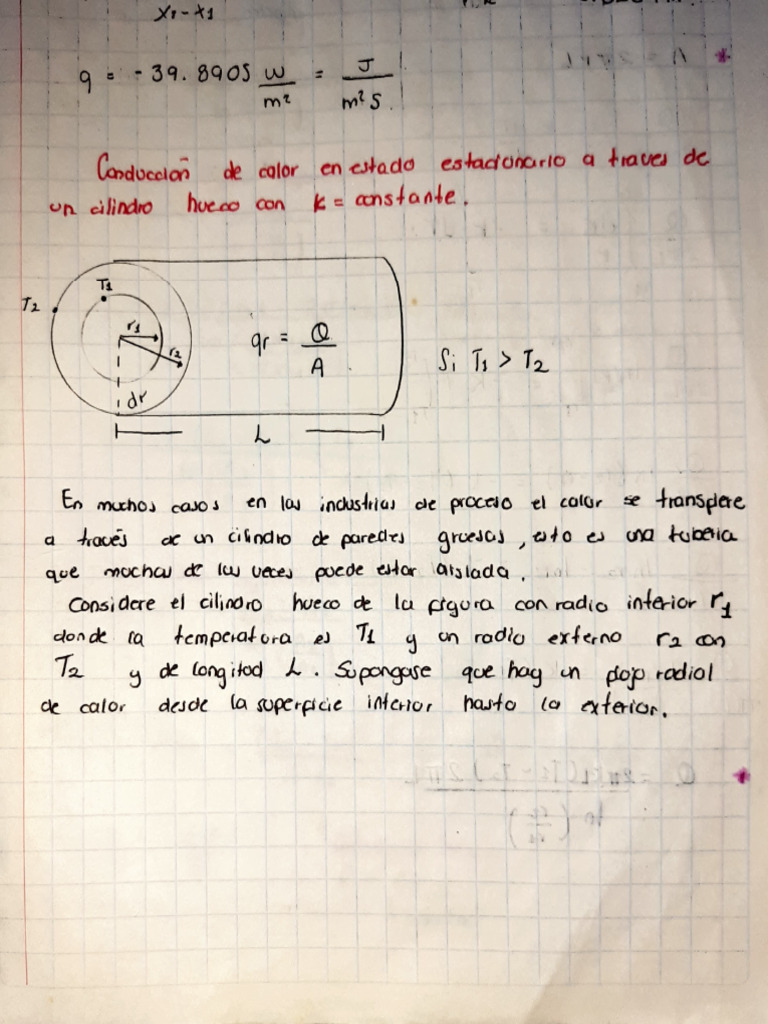 x2 - x1
q = - 39.8905 W/m² = J/m² s
Conducción de calor en estado estacionario a traves de
un cilindro hueco con k = constante.
T1
T2
r1
r2
qr = Q/A
Si T1 > T2
dr
L
En muchos casos en las industrias de proceso el calor se transfiere
a través de un cilindro de paredes gruesas, esto es una tuberia
que muchas de las veces puede estar aislada.
Considere el cilindro hueco de la figura con radio interior r1
donde la temperatura es T1 y un radio externo r2 con
T2 y de longitud L. Supongase que hay un flujo radial
de calor desde la superficie interior hasta la exterior.